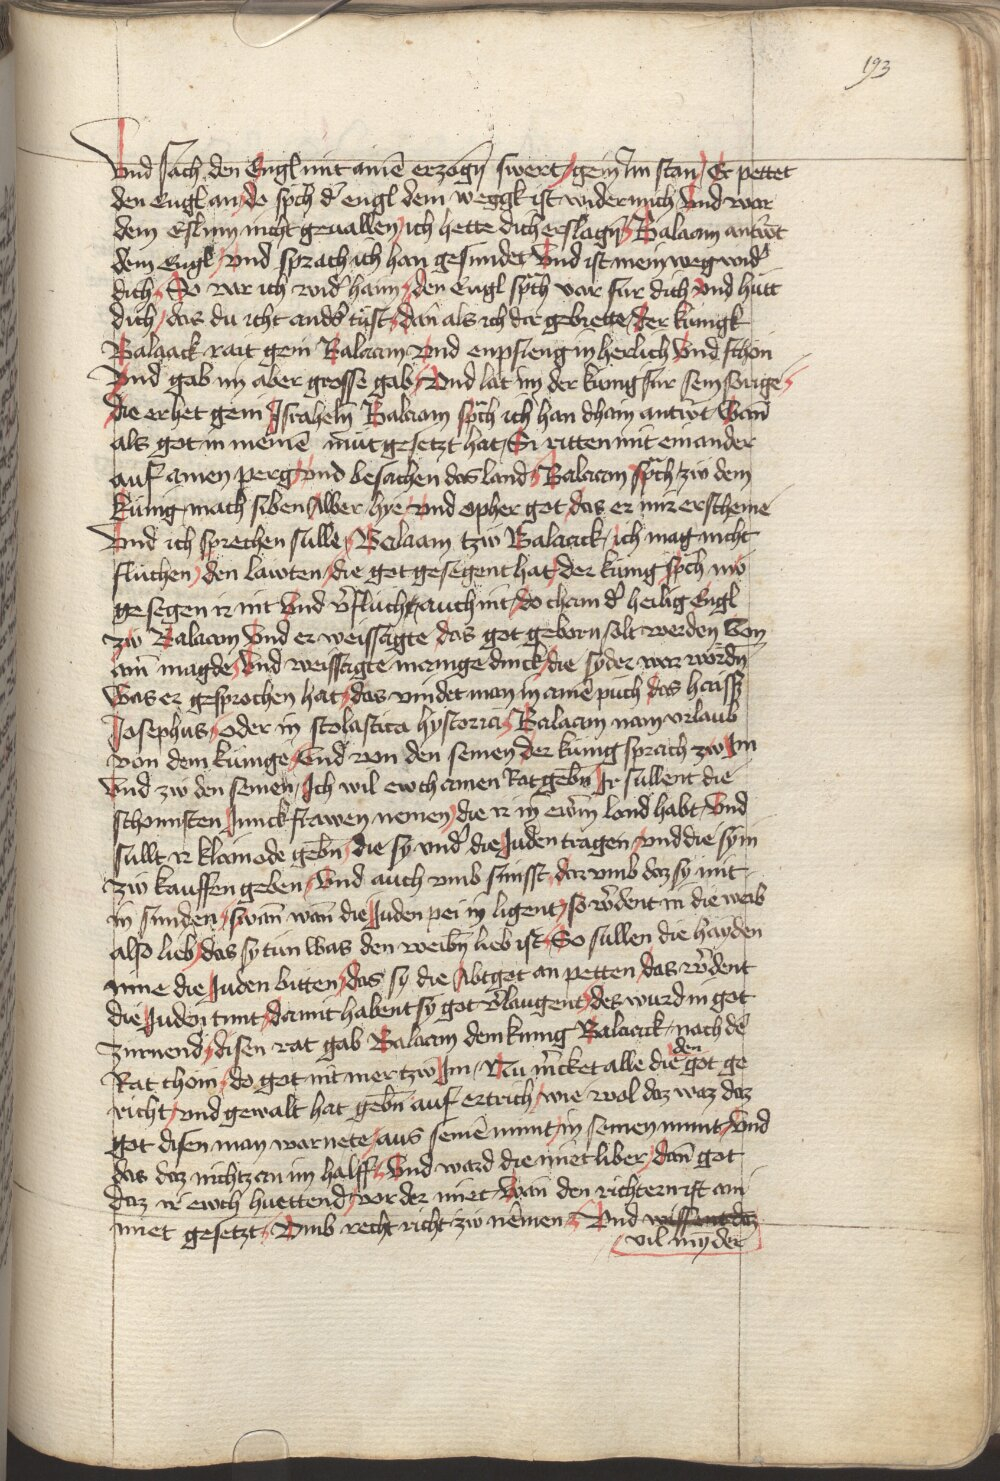 193
Vnd sach den Engl mit ainē erzogn̄ swert / gein Im stan / Er pettet
den Engl an / do spͣch d' engl dem weggk ist wider mich Vnd wor
dem Esl nu nicht geuallen / ich hette dich erslagn̄ / Balaam antw̄t
dem Engl / vnd sprach ich han gesundet Vnd ist mein weg wid'
dich / So var ich wid' haim / den Engl spͣch var fur dich vnd hutt
dich / das du icht and's tust / dan als ich dir gebiette / der kunigk
Balaack rait gein Balaam Vnd enpfieng in herlich Vnd schon
Vnd gab im aber grosse gab / Vnd lat im der kunig fur sein sorige /
die er het gein Israheln̄ Balaam spͣch ich han dhain antw̄t Wan̄
als got in meinē mut gesetzt hat / Si ritten mit einander
auf ainen perg vnd besachen das land / Balaam spͣch zw dem
kunig mach siben Alber hye vnd opher got das er mir erscheine
Vnd ich sprechen sulle / Balaam tzw Balaack / ich mag nicht
fluchen / den lawten / die got gesegent hat / der kunig spͣch nw
gesegen ir nit Vnd v'flucht auch nit / do cham d' heilig Engl
zw Balaam Vnd er weissagte das got geborn solt werden Von
ain̄ magde / Vnd weissagte manige dinck / die syder war wordn̄
Was er gesprochen hat / das vindet man in ainē puch das haisst
Josephus / oder in scolastica hystoria / Balaam nam vrlaub
von dem kunige / Vnd von den seinen / der kunig sprach zw Im
Vnd zw den seinen / Ich wil ewch ainen Rat gebn̄ Ir sullent die
schonnsten Junckfrawen nemen / die ir in ew̄m land habt / Vnd
sullt ir klainode gebn̄ / die sy vnd' die Juden tragen / vnd die sy in
zw kauffen geben / Vnd auch vmb sunsst / daz vmb daz sy mit
in sunden / swan̄ wan̄ die Juden pei in ligent / so w'dent in die weib
also lieb / das sy tun Was den weibn̄ lieb ist / So sullen die hayden
nine die Juden bitten / das sy die Abtgot an petten / das w'dent
die Juden tunt / damit habent sy got v'laugent / des wurd in got
zurnend / disen rat gab Balaam dem kunig Balaack / nach dē
Rat chom / do got nit mer tzw Im / Nu m'cket alle die den got ge
richt / vnd gewalt hat gebn̄ auf ertrich / wie wol daz waz daz
got disen man warnete / aus seinē munt / in seinen munt / Vnd
das daz nichtz an im halff / Vnd ward die miet liber / dan̄ got
daz ir ewch huettend / vor der miet / Wan den richtern ist ain
miet gesetzt / Vmb recht richt zw nemen / Vnd wissent daz
vil myn̄der